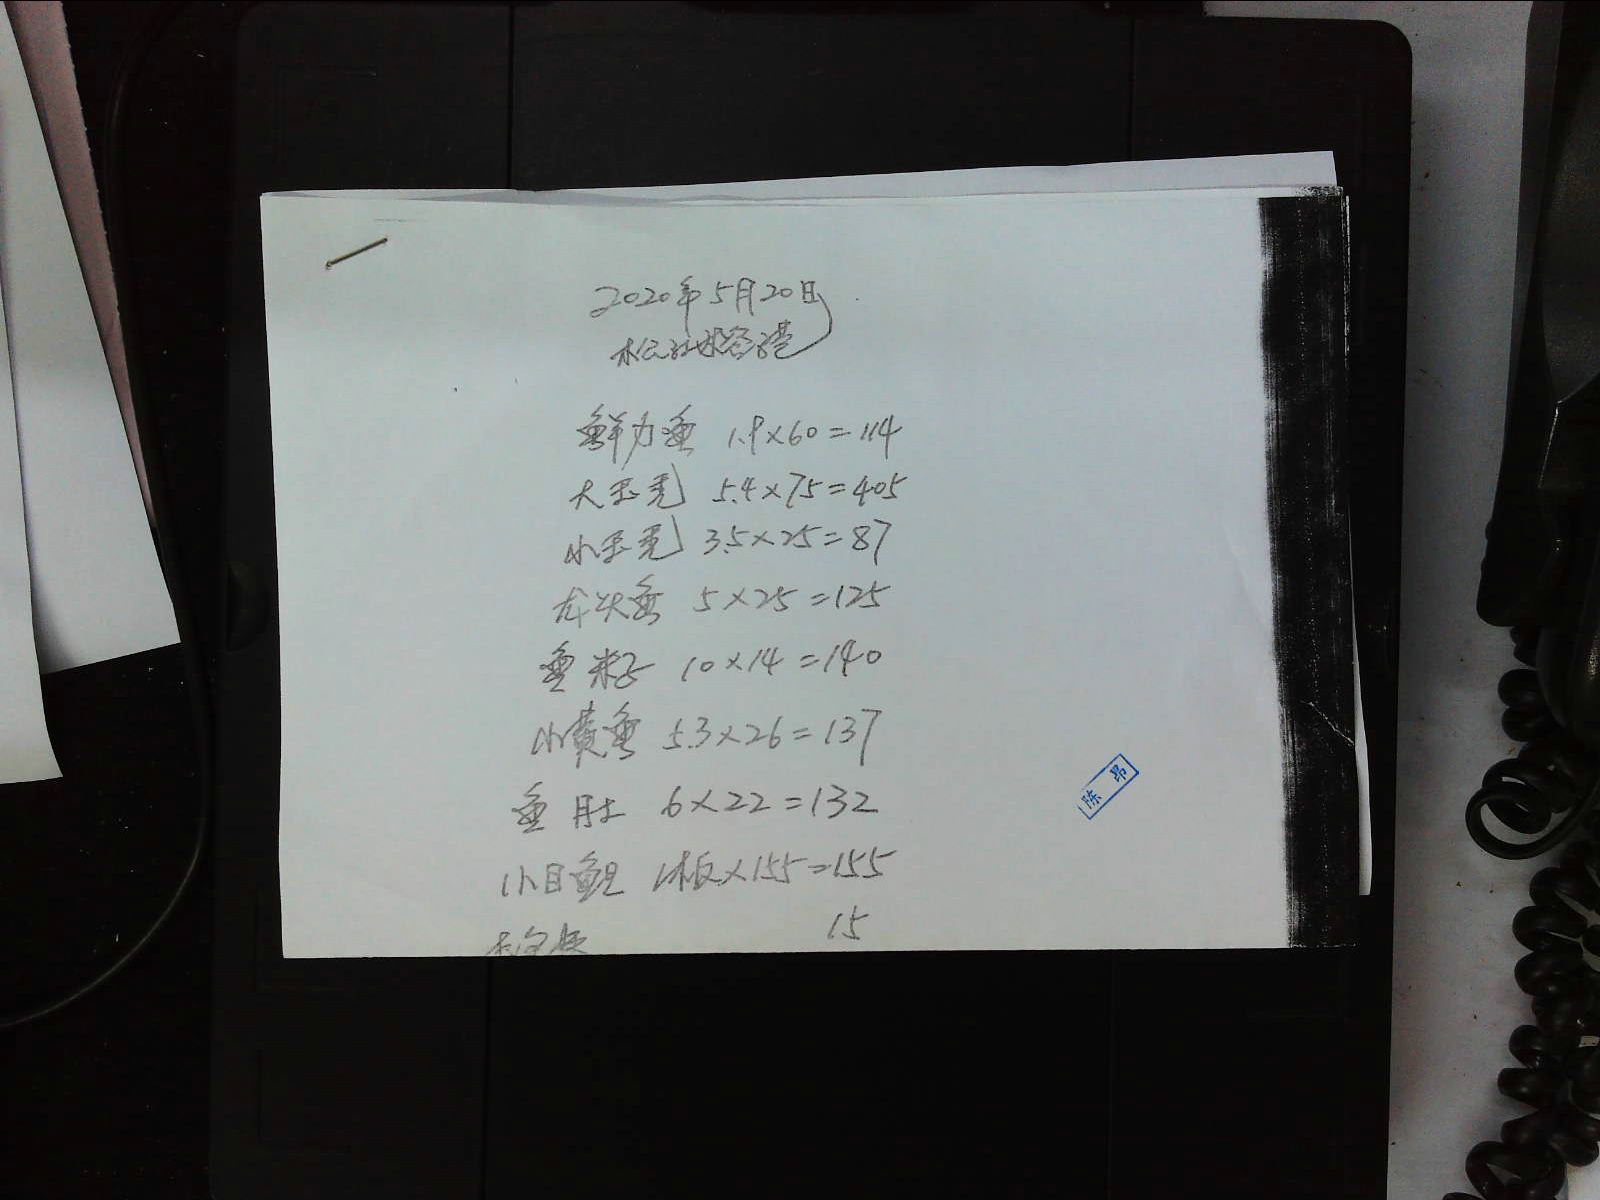 2020年5月20日
鲜力鱼 1.9×60=114
大玉秃 5.4×75=405
小玉秃 3.5×25=87
龙头鱼 5×25=125
鱼籽 10×14=140
小黄鱼 5.3×26=137
鱼肚 6×22=132
小目鲍 1板×155=155
15
陈昂